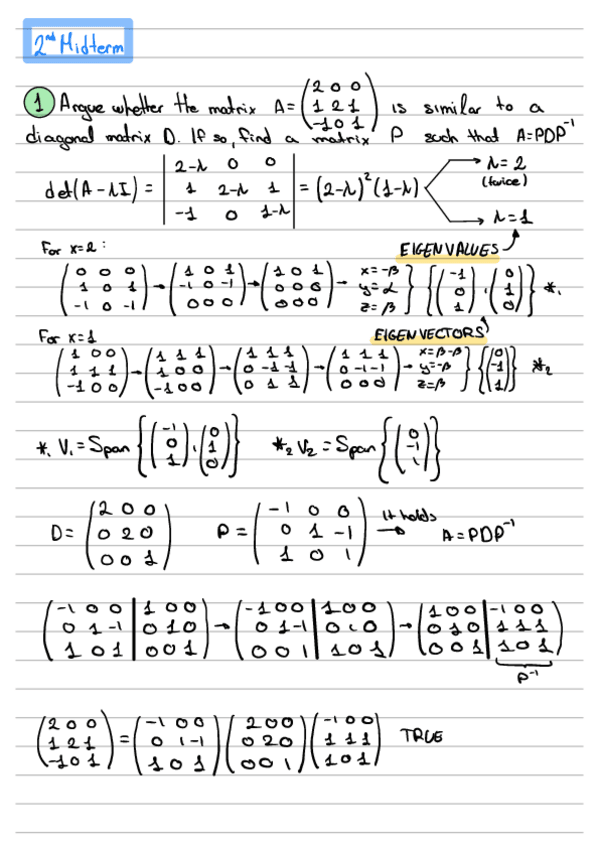 2nd Midterm
1 Argue whether the matrix A = (2 0 0; 1 2 1; -1 0 1) is similar to a
diagonal matrix D. If so, find a matrix P such that A=PDP⁻¹
det(A - λI) = |2-λ 0 0; 1 2-λ 1; -1 0 1-λ| = (2-λ)²(1-λ) → λ=2 (twice) → λ=1
For x=2: EIGENVALUES
(0 0 0; 1 0 1; -1 0 -1) → (1 0 1; -1 0 -1; 0 0 0) → (1 0 1; 0 0 0; 0 0 0) → x=-β y=α z=β } {(-1; 0; 1), (0; 1; 0)} *₁
For x=1 EIGENVECTORS
(1 0 0; 1 1 1; -1 0 0) → (1 1 1; 1 0 0; -1 0 0) → (1 1 1; 0 -1 -1; 0 1 1) → (1 1 1; 0 -1 -1; 0 0 0) → x=β-β y=-β z=β } {(0; -1; 1)} *₂
*₁ V₁ = Span {(-1; 0; 1), (0; 1; 0)} *₂ V₂ = Span {(0; -1; 1)}
D = (2 0 0; 0 2 0; 0 0 1) P = (-1 0 0; 0 1 -1; 1 0 1) It holds → A=PDP⁻¹
(-1 0 0 | 1 0 0; 0 1 -1 | 0 1 0; 1 0 1 | 0 0 1) → (-1 0 0 | 1 0 0; 0 1 -1 | 0 1 0; 0 0 1 | 1 0 1) → (1 0 0 | -1 0 0; 0 1 0 | 1 1 1; 0 0 1 | 1 0 1)
P⁻¹
(2 0 0; 1 2 1; -1 0 1) = (-1 0 0; 0 1 -1; 1 0 1) (2 0 0; 0 2 0; 0 0 1) (-1 0 0; 1 1 1; 1 0 1) TRUE